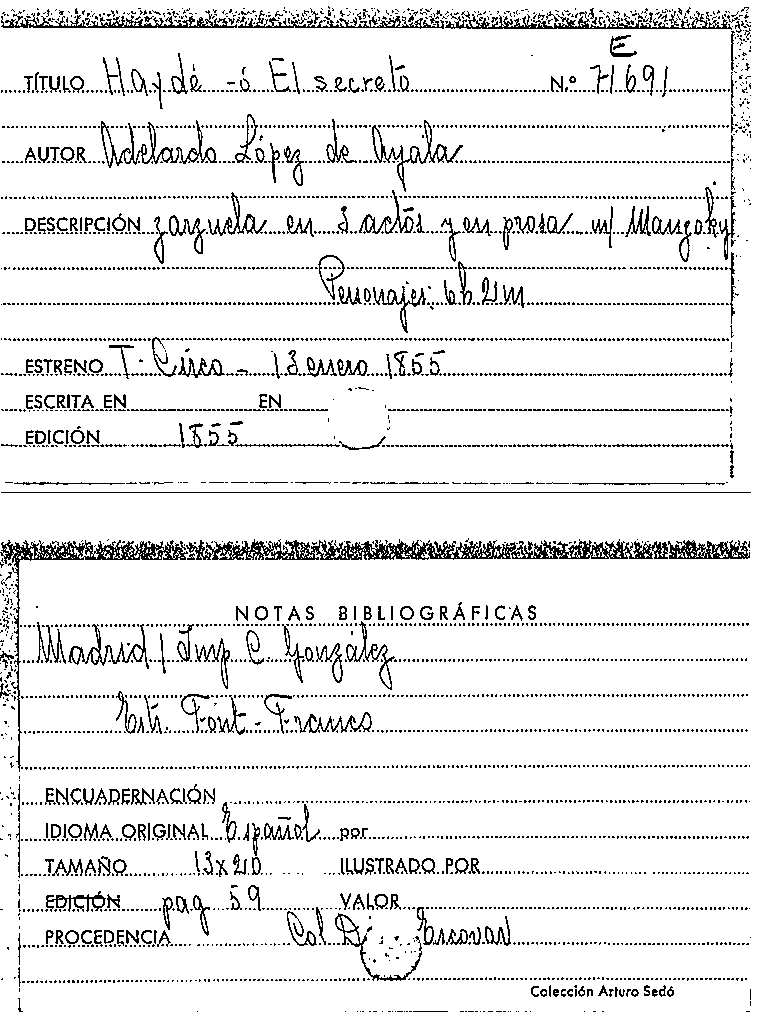 E
TÍTULO Haydé -ó El secreto N.º 71691
AUTOR Adelardo López de Ayala
DESCRIPCIÓN zarzuela en 3 actos y en prosa m/
Personajes: 6h 2m
ESTRENO T. Circo - 13 enero 1855
ESCRITA EN EN
EDICIÓN 1855
NOTAS BIBLIOGRÁFICAS
Madrid / Imp C. González
Font-Franco
ENCUADERNACIÓN
IDIOMA ORIGINAL Español por
TAMAÑO 13x20 ILUSTRADO POR
EDICIÓN pag 59 VALOR
PROCEDENCIA Col Escovar
Colección Arturo Sedó